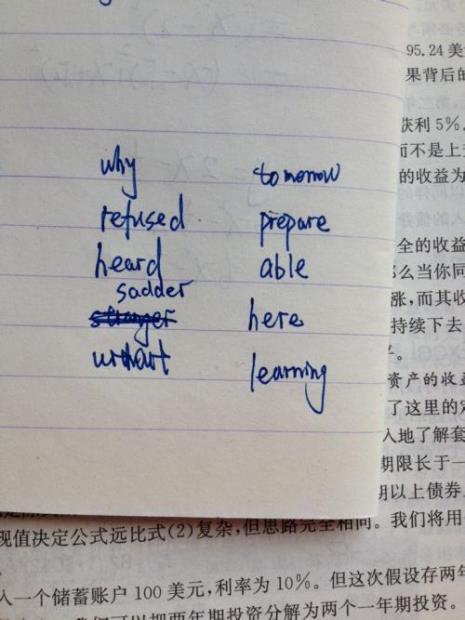 why
refused
heard
sadder
stranger
tomorrow
prepare
able
here
learning
95.24 美
果背后的
获利 5%
而不是上
的收益为
全的收益
么当你同
涨,而其收
持续下去
资产的收益
了这里的
人地了解套
期限长于一
以上债券
现值决定公式远比式(2)复杂,但思路完全相同。我们将用
人一个储蓄账户 100 美元,利率为 10%。但这次假设存两年
我们可以把两年期投资分解为两个一年期投资。